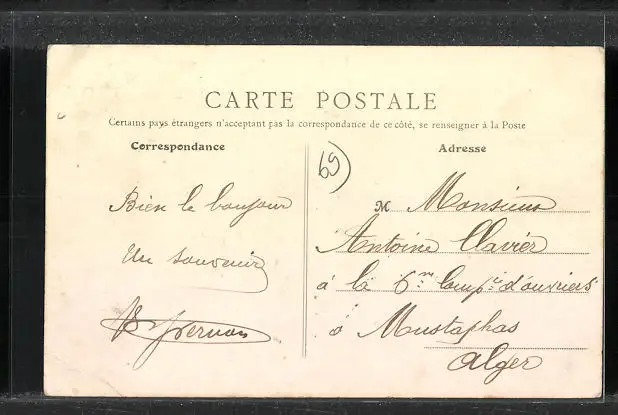 CARTE POSTALE
Certains pays étrangers n'acceptant pas la correspondance de ce côté, se renseigner à la Poste
Correspondance
Bien le bonjour
Un souvenir
Adresse
69
M Monsieur
Antoine Clavier
á la 6me Compie d'ouvriers
a Mustaphas
Alger